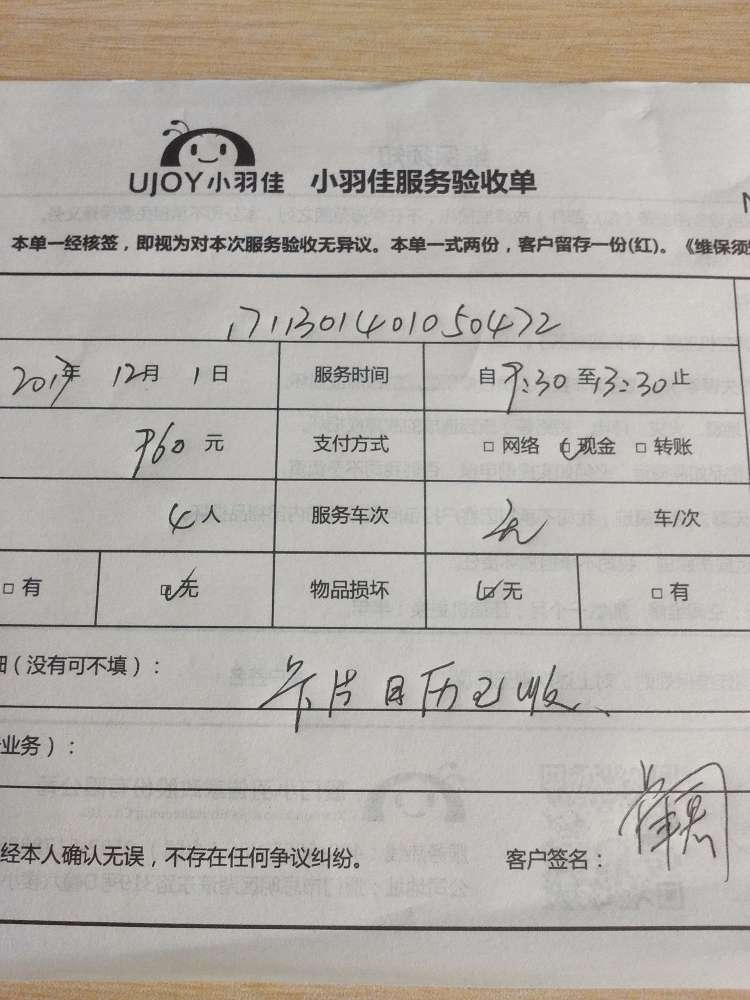 UJOY小羽佳 小羽佳服务验收单
本单一经核签，即视为对本次服务验收无异议。本单一式两份，客户留存一份(红)。《维保须
1711301401050472
2017年 12月 1日 服务时间 自 9:30 至 13:30 止
960 元 支付方式 □ 网络 ☑ 现金 □ 转账
4 人 服务车次 车/次
□ 有 ☑ 无 物品损坏 ☑ 无 □ 有
(没有可不填)： 卡片日历已收
业务)：
经本人确认无误，不存在任何争议纠纷。 客户签名：